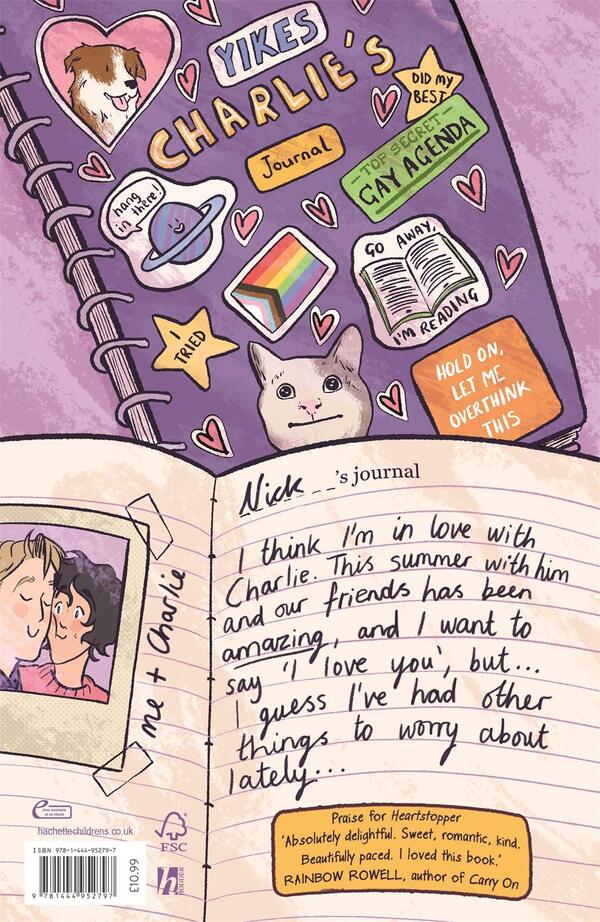 YIKES
CHARLIE'S
Journal
DID MY
BEST
-TOP SECRET-
GAY AGENDA
hang
in there!
GO AWAY,
I'M READING
I
TRIED
HOLD ON,
LET ME
OVERTHINK
THIS
Nick __'s journal
I think I'm in love with
Charlie. This summer with him
and our friends has been
amazing, and I want to
say 'I love you', but...
I guess I've had other
things to worry about
lately...
me + Charlie
Praise for Heartstopper
'Absolutely delightful. Sweet, romantic, kind.
Beautifully paced. I loved this book.'
RAINBOW ROWELL, author of Carry On
e
Also available
as an ebook
hachettechildrens.co.uk
FSC
ISBN 978-1-444-95279-7
9 781444 952797
£10.99
h
HODDER